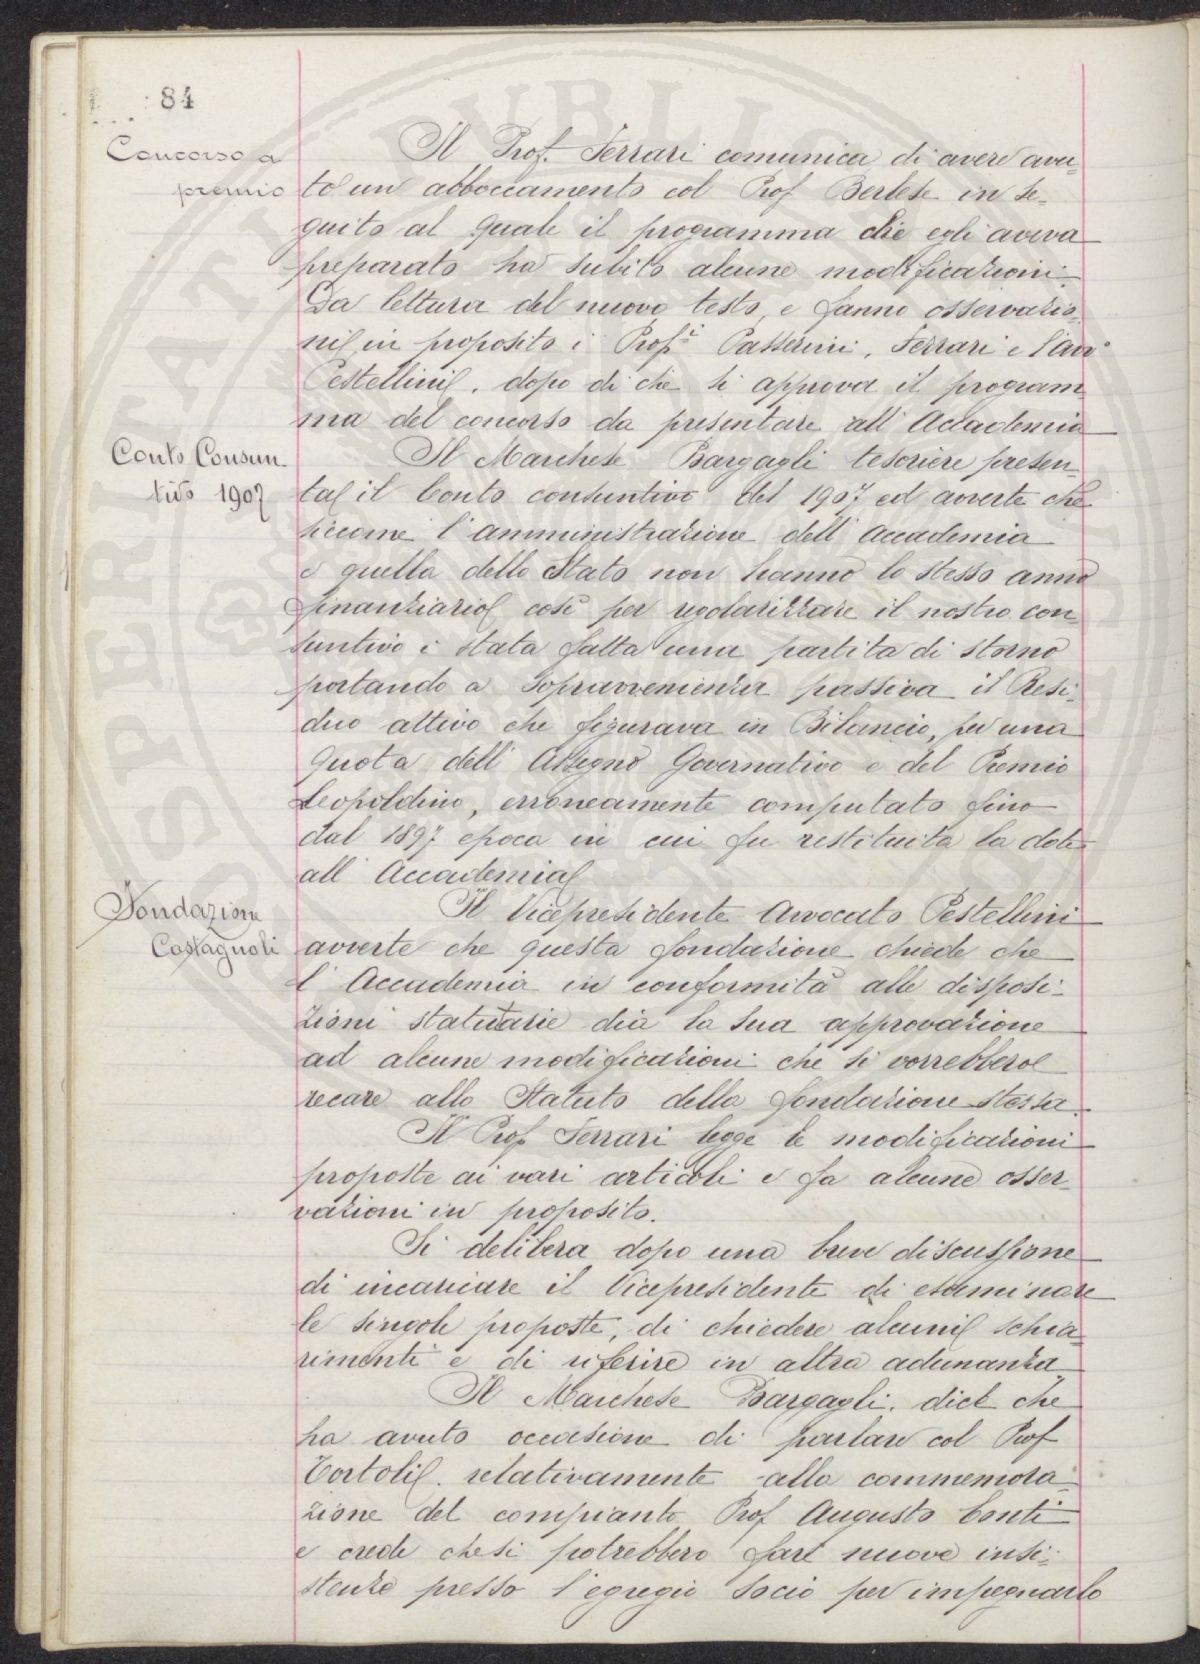 84
Concorso a
premio
Il Prof. Ferrari comunica di avere avu-
to un abboccamento col Prof Berlese in se-
guito al quale il programma che egli aveva
preparato ha subito alcune modificazioni.
Da lettura del nuovo testo, e fanno osservazio-
ni in proposito i Prof.i Passerini, Ferrari e l'avv°
Pestellini. dopo di che si approva il program-
ma del concorso da presentare all'Accademia
Conto Consun-
tivo 1907
Il Marchese Bargagli tesoriere presen-
ta il Conto consuntivo del 1907 ed avverte che
siccome l'amministrazione dell'Accademia
e quella dello Stato non hanno lo stesso anno
finanziario così per regolarizzare il nostro con
suntivo è stata fatta una partita di storno
portando a Sopravvenienza passiva il Resi-
duo attivo che figurava in Bilancio, per una
quota dell'Assegno Governativo e del Premio
Leopoldino, erroneamente computato fino
dal 1897 epoca in cui fu restituita la dote
all'Accademia
Fondazione
Castagnoli
Il Vicepresidente Avvocato Pestellini
avverte che questa fondazione chiede che
l'Accademia in conformità alle disposi-
zioni statutarie dia la sua approvazione
ad alcune modificazioni che si vorrebbero
recare allo Statuto della fondazione stessa.
Il Prof Ferrari legge le modificazioni
proposte ai vari articoli e fa alcune osser-
vazioni in proposito.
Si delibera dopo una breve discussione
di incaricare il Vicepresidente di esaminare
le singole proposte, di chiedere alcuni schia-
rimenti e di riferire in altra adunanza
Il Marchese Bargagli. dice che
ha avuto occasione di parlare col Prof
Tortoli. relativamente alla commemora-
zione del compianto Prof Augusto Conti
e crede che si potrebbero fare nuove insi-
stenze presso l'egregio socio per impegnarlo